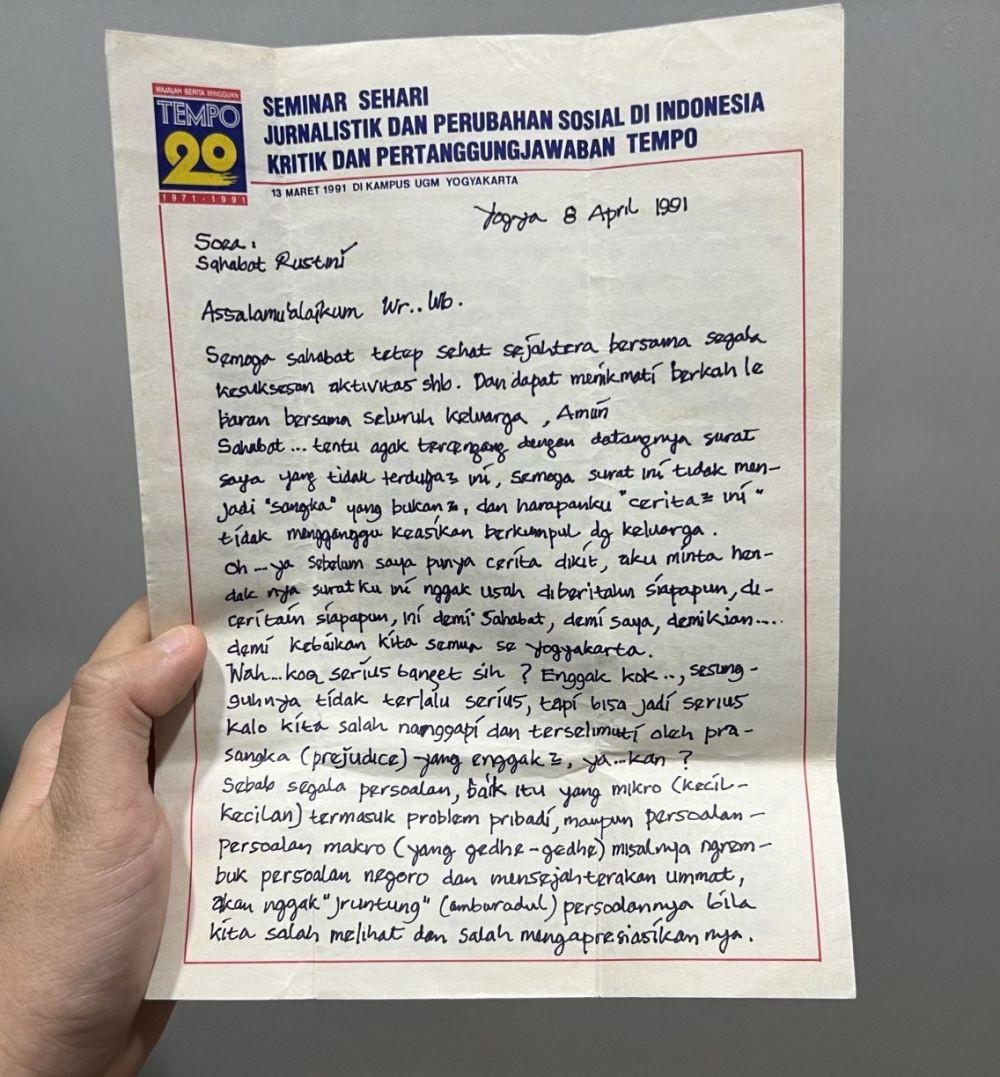 MAJALAH BERITA MINGGUAN
TEMPO
20
1971-1991
SEMINAR SEHARI
JURNALISTIK DAN PERUBAHAN SOSIAL DI INDONESIA
KRITIK DAN PERTANGGUNGJAWABAN TEMPO
13 MARET 1991 DI KAMPUS UGM YOGYAKARTA
Yogya 8 April 1991
Sahabat Rustini
Assalamu'alaikum Wr.. Wb.
Semoga sahabat tetep sehat sejahtera bersama segala
kesuksesan aktivitas shb. Dan dapat menikmati berkah le
baran bersama seluruh keluarga, Amin
Sahabat... tentu agak tercengang dengan datangnya surat
saya yang tidak terduga2 ini, semoga surat ini tidak men-
jadi "sangka" yang bukan2, dan harapanku "cerita2 ini"
tidak mengganggu keasikan berkumpul dg keluarga.
oh...ya sebelum saya punya cerita dikit, aku minta hen-
dak nya suratku ini nggak usah diberitahu siapapun, di-
ceritain siapapun, ini demi sahabat, demi saya, demikian....
demi kebaikan kita semua se yogyakarta.
Wah...koq serius banget sih? Enggak kok.., sesung-
guhnya tidak terlalu serius, tapi bisa jadi serius
kalo kita salah nanggapi dan terselimuti oleh pra-
sangka (prejudice) yang enggak2, ya...kan?
Sebab segala persoalan, baik itu yang mikro (kecil-
kecilan) termasuk problem pribadi, maupun persoalan-
persoalan makro (yang gedhe-gedhe) misalnya ngrem-
buk persoalan negoro dan mensejahterakan ummat,
akan nggak "jruntung" (amburadul) persoalannya bila
kita salah melihat dan salah mengapresiasikan nya.